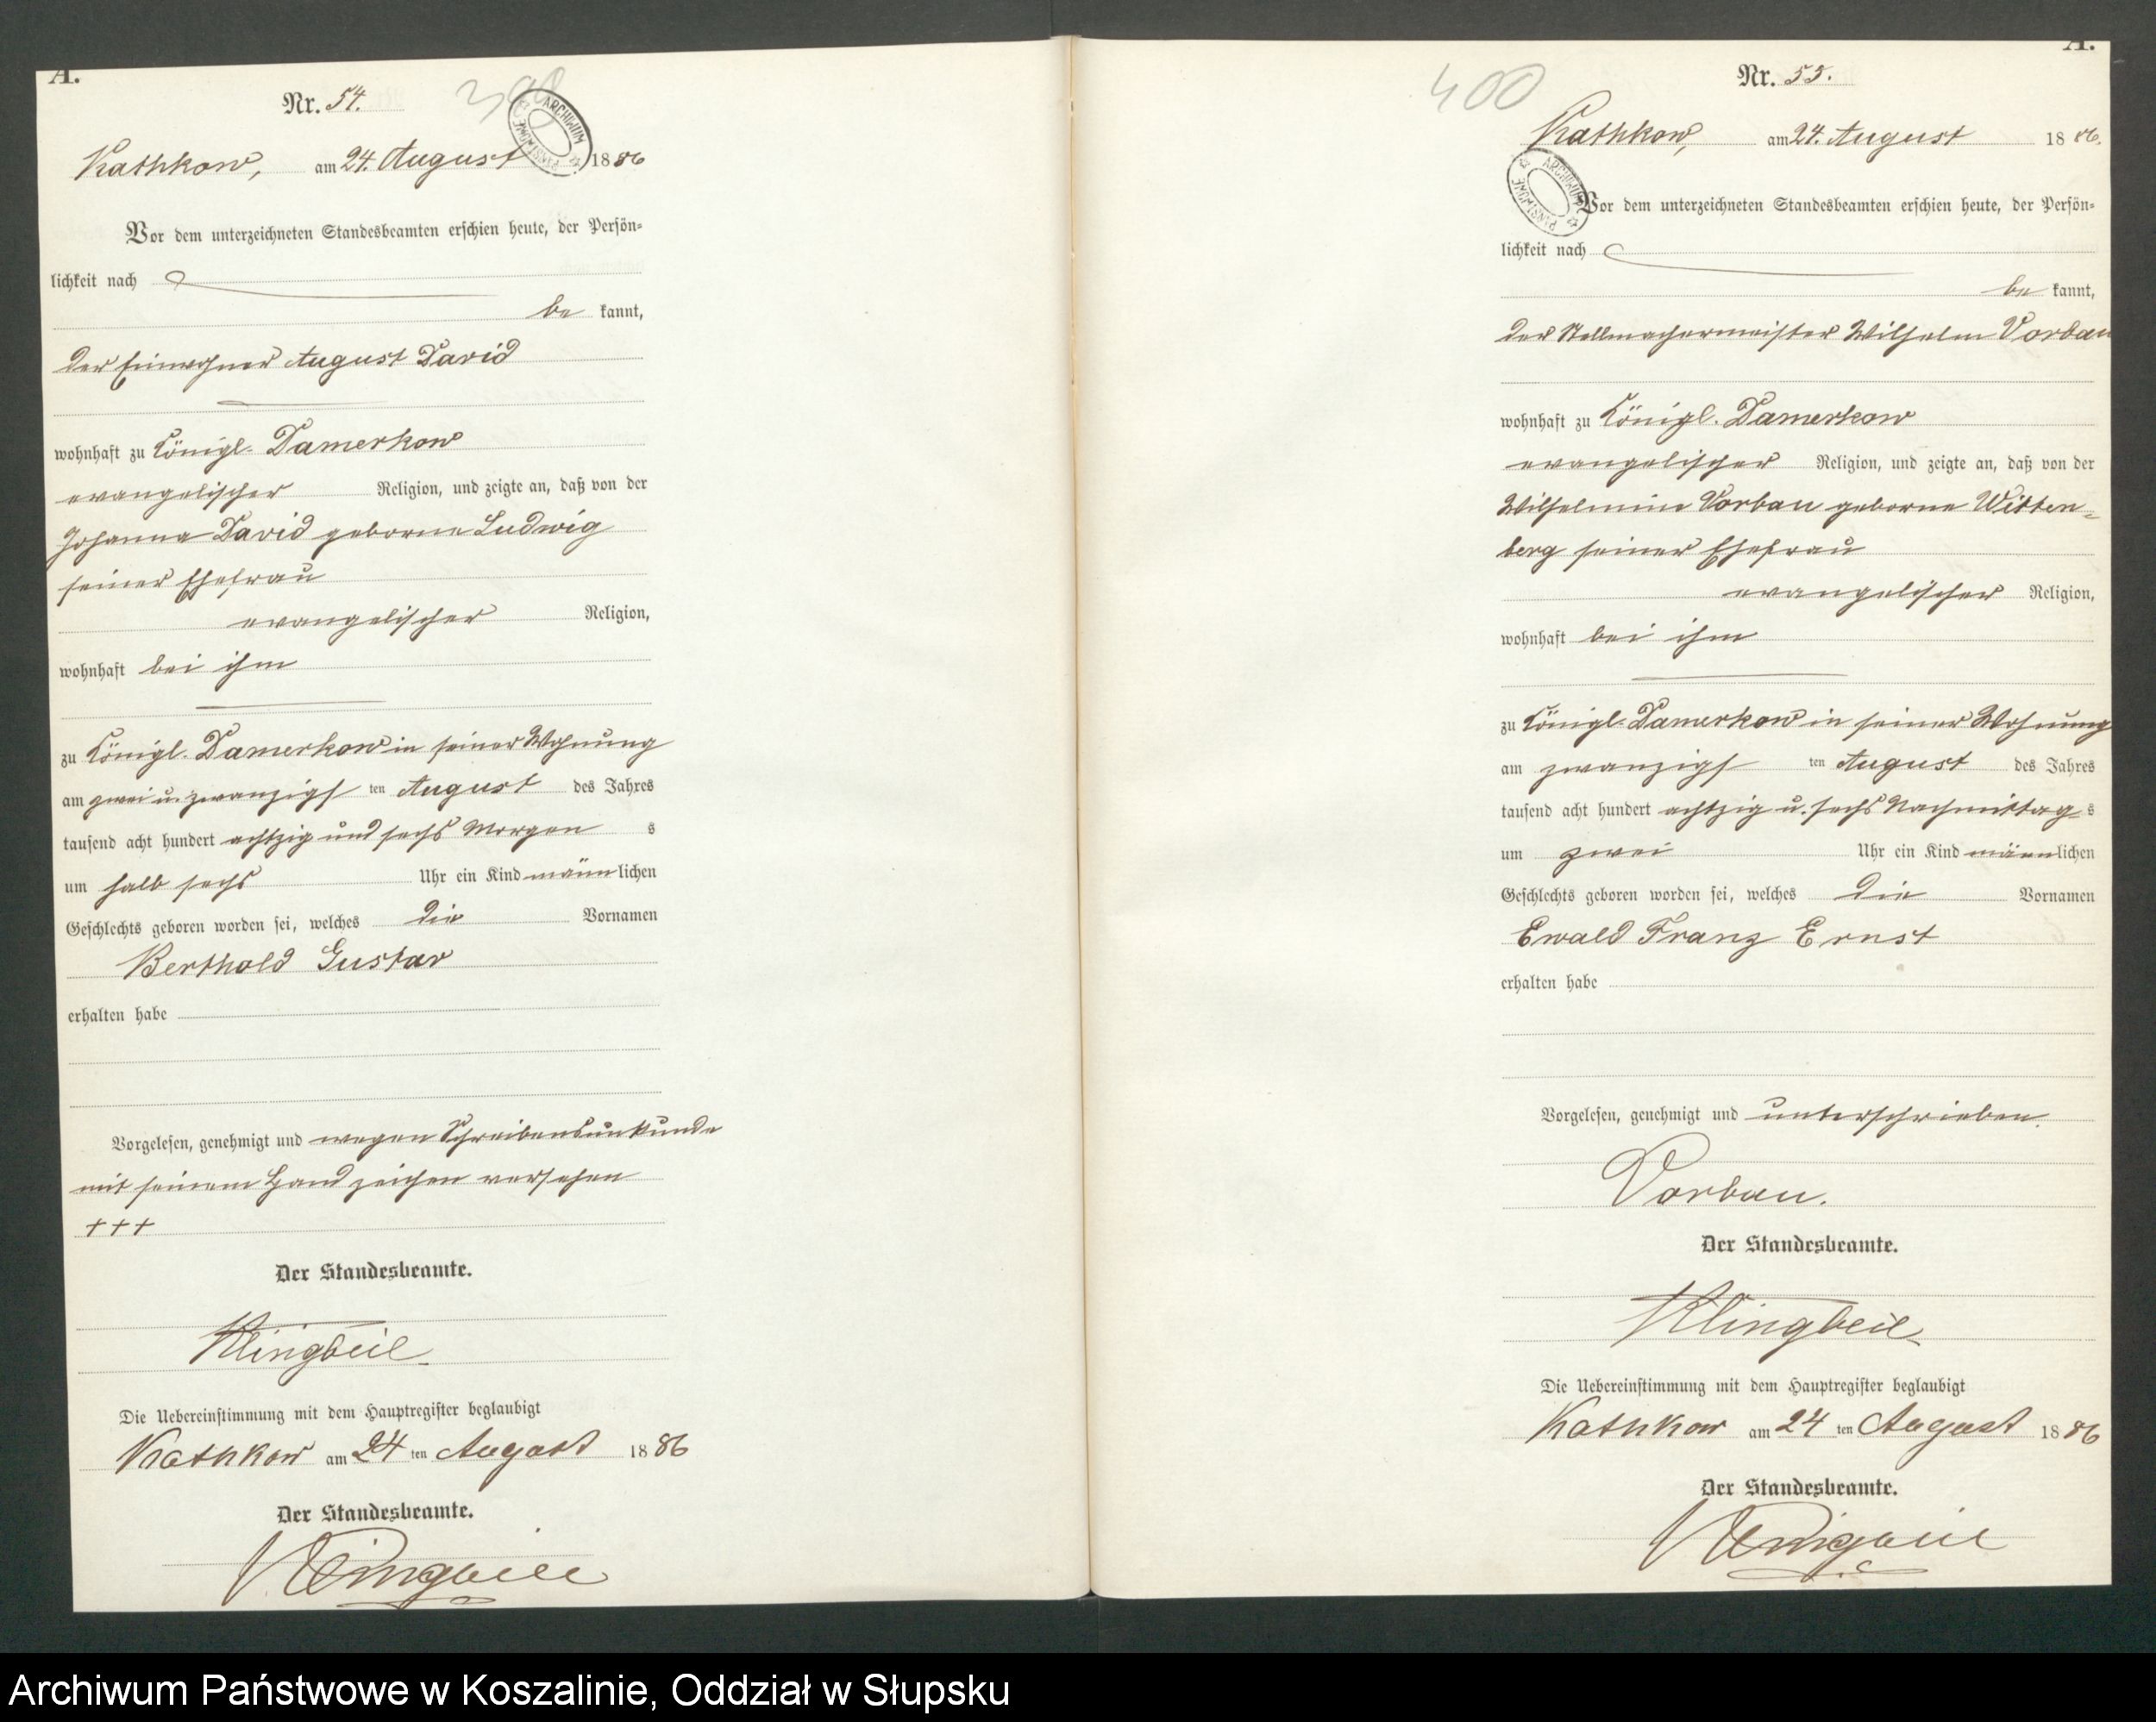 A.
Nr. 54.
Kathkow, am 24. August 1886
ARCHIWUM PAŃSTWOWE
Vor dem unterzeichneten Standesbeamten erschien heute, der Persön-
lichkeit nach
be kannt,
der Einwohner August David
wohnhaft zu Königl. Damerkow
evangelischer Religion, und zeigte an, daß von der
Johanna David geborne Ludwig
seiner Ehefrau
evangelischer Religion,
wohnhaft bei ihm
zu Königl. Damerkow in seiner Wohnung
am zwei u. zwanzigs ten August des Jahres
tausend acht hundert achtzig und sechs Morgen s
um halb sechs Uhr ein Kind männ lichen
Geschlechts geboren worden sei, welches die Vornamen
Berthold Gustav
erhalten habe
Vorgelesen, genehmigt und wegen Schreibensunkunde
mit seinem Handzeichen versehen
+++
Der Standesbeamte.
Klingbeil
Die Uebereinstimmung mit dem Hauptregister beglaubigt
Kathkow am 24 ten August 1886
Der Standesbeamte.
Klingbeil
A.
400
Nr. 55.
Kathkow, am 24. August 1886.
ARCHIWUM PAŃSTWOWE
Vor dem unterzeichneten Standesbeamten erschien heute, der Persön-
lichkeit nach
be kannt,
der Stellmachermeister Wilhelm Vorbau
wohnhaft zu Königl. Damerkow
evangelischer Religion, und zeigte an, daß von der
Wilhelmine Vorbau geborne Witten-
berg seiner Ehefrau
evangelischer Religion,
wohnhaft bei ihm
zu Königl. Damerkow in seiner Wohnung
am zwanzigs ten August des Jahres
tausend acht hundert achtzig u. sechs Nachmittag s
um zwei Uhr ein Kind männ lichen
Geschlechts geboren worden sei, welches die Vornamen
Ewald Franz Ernst
erhalten habe
Vorgelesen, genehmigt und unterschrieben.
Vorbau.
Der Standesbeamte.
Klingbeil
Die Uebereinstimmung mit dem Hauptregister beglaubigt
Kathkow am 24 ten August 1886
Der Standesbeamte.
Klingbeil
Archiwum Państwowe w Koszalinie, Oddział w Słupsku